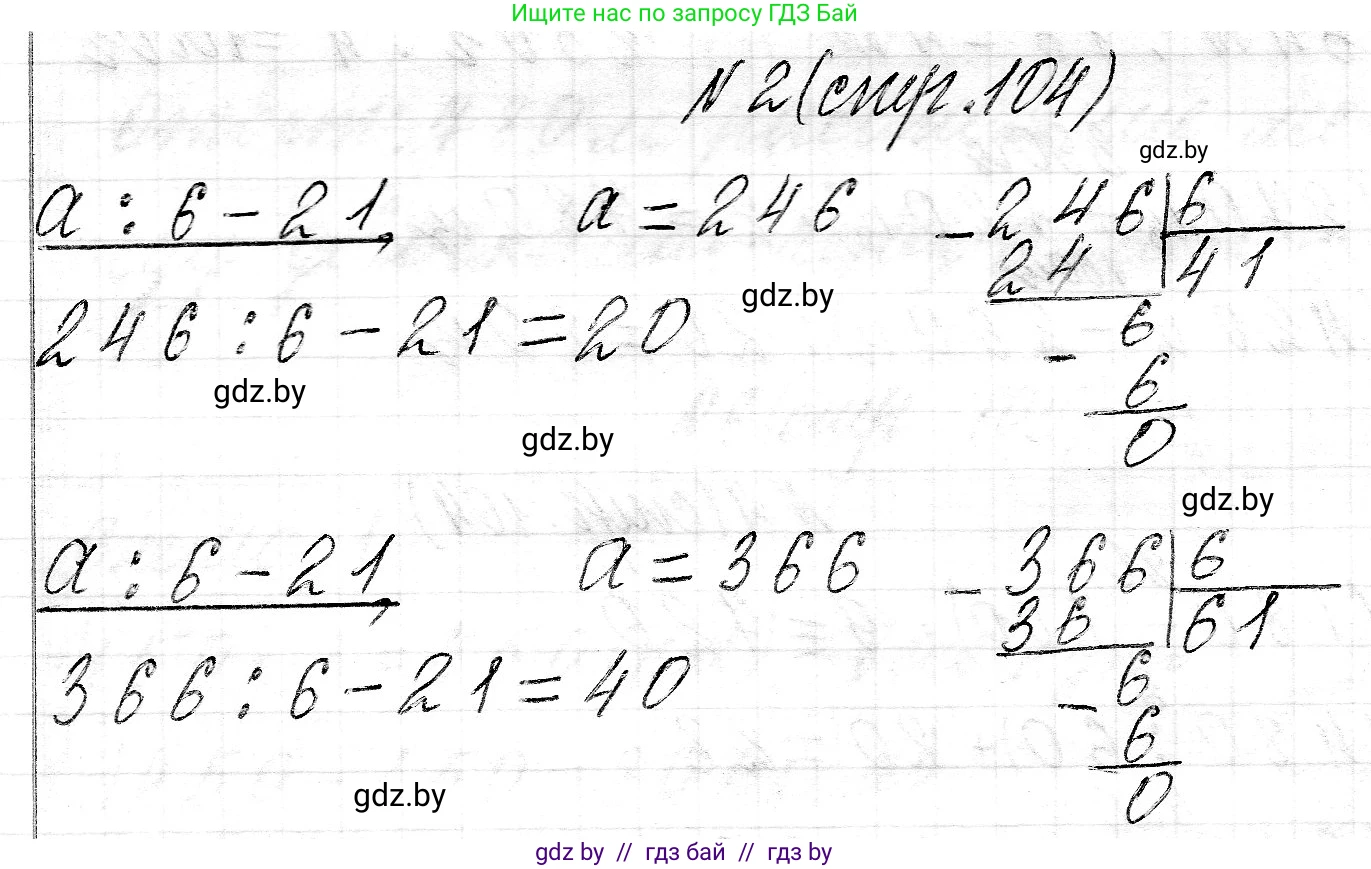 Ищите нас по запросу ГДЗ Бай
№ 2 (стр. 104)
gdz.by
a : 6 - 21, a = 246
- 246 | 6
24 41
246 : 6 - 21 = 20
gdz.by
6
- 6
0
gdz.by
gdz.by
gdz.by
a : 6 - 21, a = 366
- 366 | 6
36 61
366 : 6 - 21 = 40
- 6
6
0
gdz.by
gdz by // гдз бай // гдз by